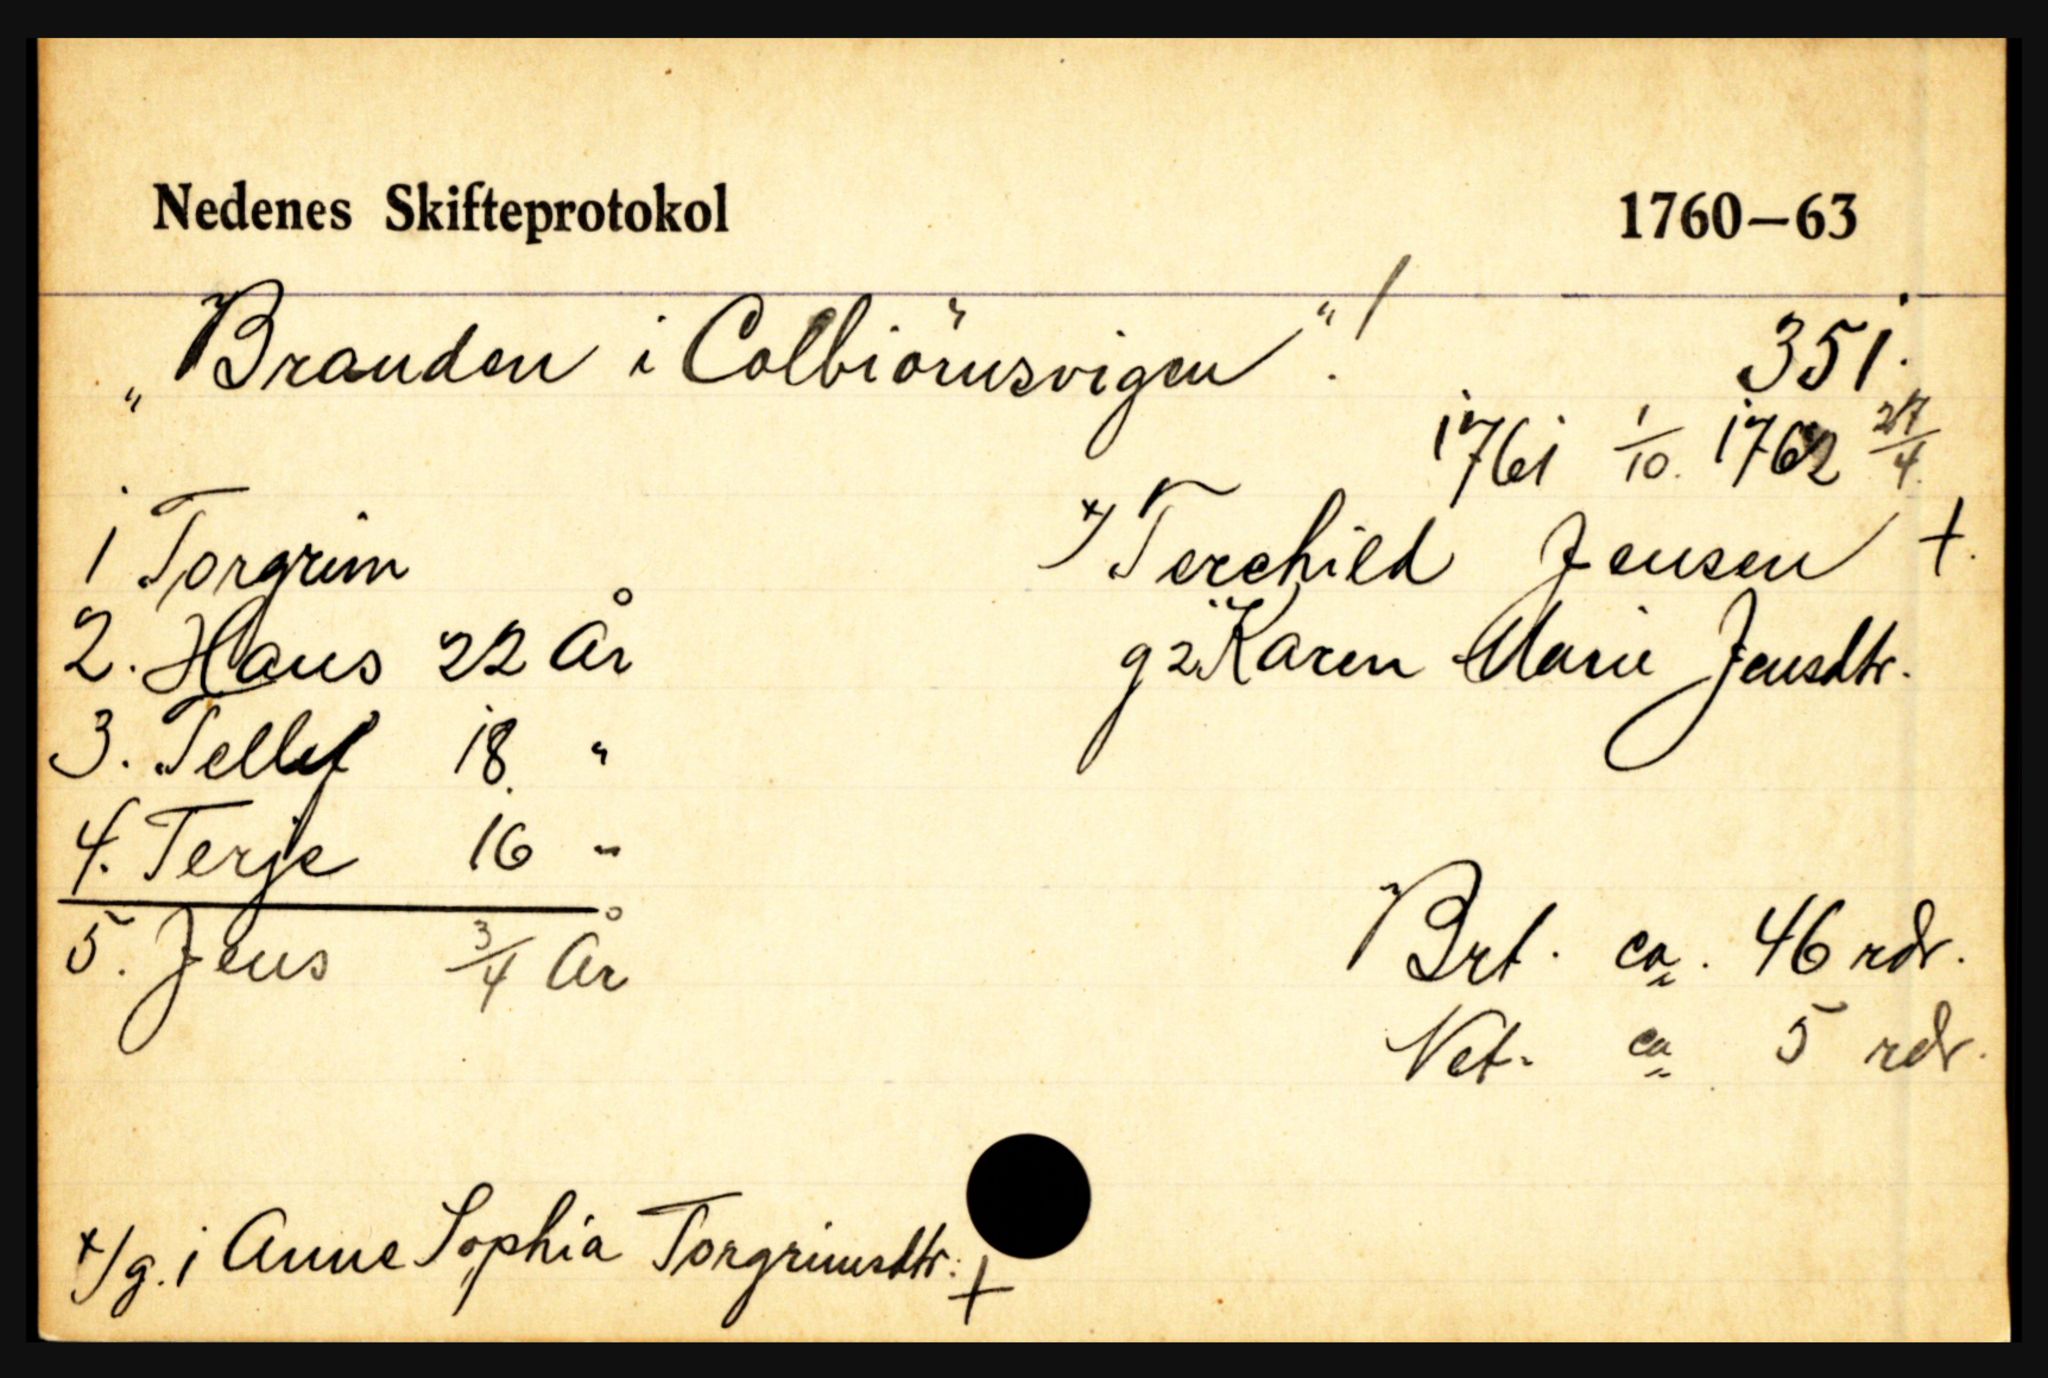 Nedenes Skifteprotokol 1760—63
„Branden i Colbiörnsvigen“! 351.
1761 1/10. 1762 27/4.
x/ Terchild Jensen +.
g 2. Karen Marie Jensdtr.
1 Torgrim
2. Hans 22 År
3. Tellef 18. "
4. Terje 16 "
5. Jens 3/4 År
Brt. ca. 46 rdr.
Net. ca 5 rdr.
x/ g. 1 Anne Sophia Torgrimsdtr. +